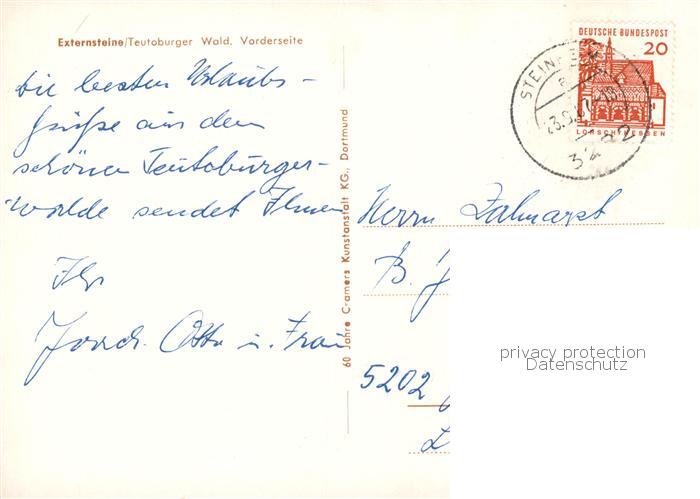 Externsteine/Teutoburger Wald. Vorderseite
Die besten Urlaubs-
grüße aus dem
schönen Teutoburger-
walde sendet Ihnen
Ihr
Otto u. Frau
60 Jahre Cramers Kunstanstalt KG., Dortmund
DEUTSCHE BUNDESPOST
20
LORSCH/HESSEN
STEINHEIM
Herrn Zahnarzt
B.
5202
privacy protection
Datenschutz